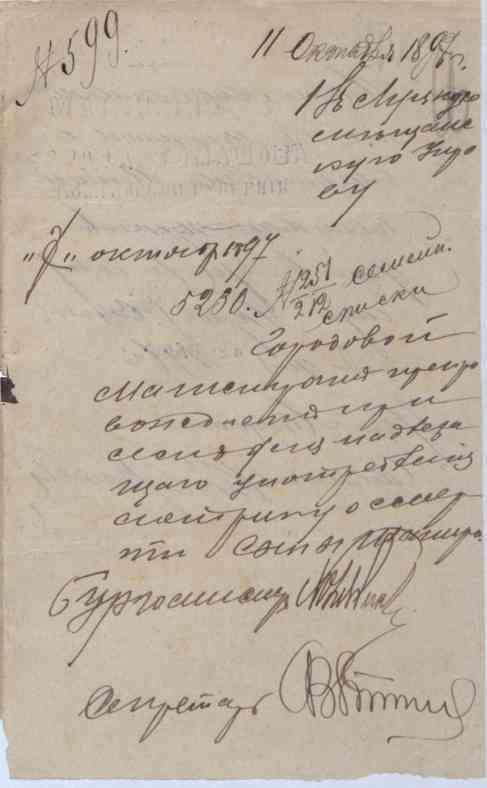 № 599.
11 Октября 1897 г.
Въ
скую Упра
ву
"7" октября 1897
5230. № 1251/212 семейн.
списки
Городовой
Магистратъ препро
вождаетъ при
семъ для надлежа
щаго употребленія
метрику о смер
ти
Бургомистръ
Секретарь